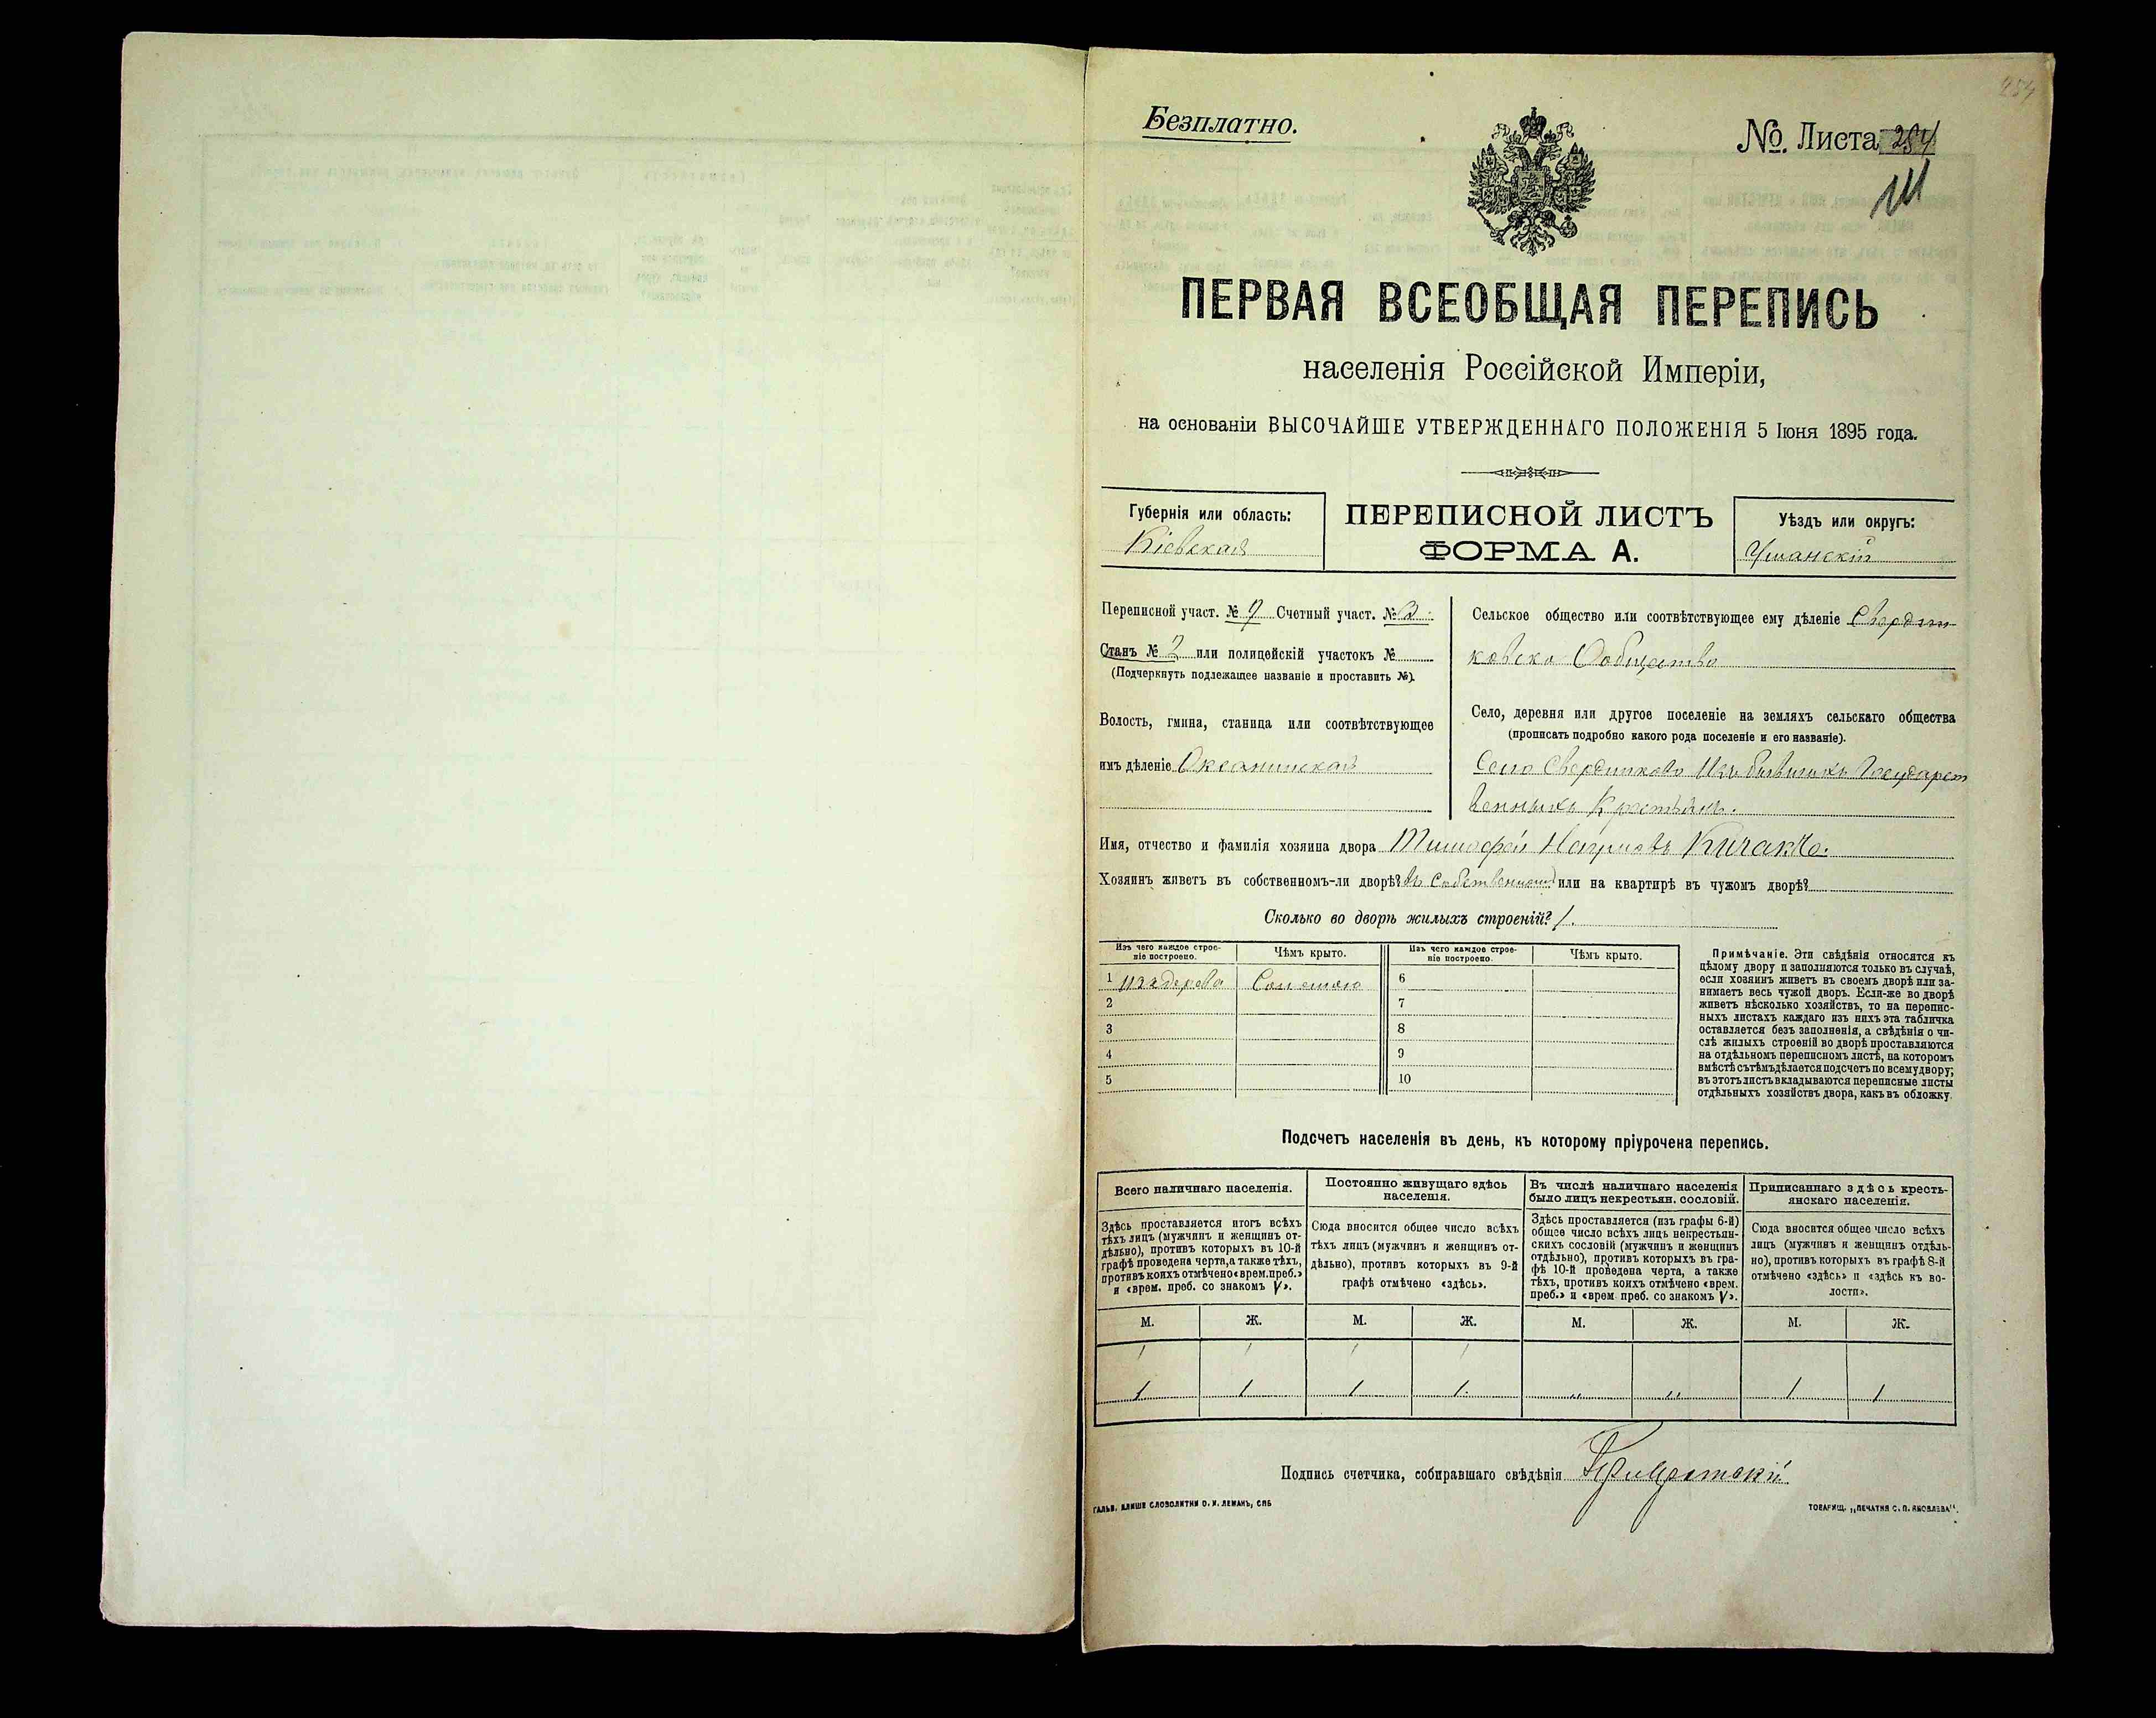 254
Безплатно.
№. Листа 254
14
ПЕРВАЯ ВСЕОБЩАЯ ПЕРЕПИСЬ
населенія Россійской Имперіи,
на основаніи ВЫСОЧАЙШЕ УТВЕРЖДЕННАГО ПОЛОЖЕНІЯ 5 Іюня 1895 года.
Губернія или область:
Кіевская
ПЕРЕПИСНОЙ ЛИСТЪ
ФОРМА А.
Уѣздъ или округъ:
Уманскій
Переписной участ. № Счетный участ. № 3.
Станъ № 2 или полицейскій участокъ №
(Подчеркнуть подлежащее названіе и проставить №).
Волость, гмина, станица или соотвѣтствующее
имъ дѣленіе Оксанинская
Сельское общество или соотвѣтствующее ему дѣленіе
Село, деревня или другое поселеніе на земляхъ сельскаго общества
(прописать подробно какого рода поселеніе и его названіе).
Село Свердликово Изъ бывшихъ Государст
венныхъ Крестьянъ.
Имя, отчество и фамилія хозяина двора Тимофей
Хозяинъ живетъ въ собственномъ-ли дворѣ? или на квартирѣ въ чужомъ дворѣ?
Сколько во дворѣ жилыхъ строеній? 1.
Изъ чего каждое строе-
ніе построено.
Чѣмъ крыто.
Изъ чего каждое строе-
ніе построено.
Чѣмъ крыто.
1 изъ дерева Соломою 6
2 7
3 8
4 9
5 10
Примѣчаніе. Эти свѣдѣнія относятся къ
цѣлому двору и заполняются только въ случаѣ,
если хозяинъ живетъ въ своемъ дворѣ или за-
нимаетъ весь чужой дворъ. Если-же во дворѣ
живетъ нѣсколько хозяйствъ, то на перепис-
ныхъ листахъ каждаго изъ нихъ эта табличка
оставляется безъ заполненія, а свѣдѣнія о чи-
слѣ жилыхъ строеній во дворѣ проставляются
на отдѣльномъ переписномъ листѣ, на которомъ
вмѣстѣ съ тѣмъ дѣлается подсчетъ по всему двору;
въ этотъ листъ вкладываются переписные листы
отдѣльныхъ хозяйствъ двора, какъ въ обложку.
Подсчетъ населенія въ день, къ которому пріурочена перепись.
Всего наличнаго населенія.
Здѣсь проставляется итогъ всѣхъ
тѣхъ лицъ (мужчинъ и женщинъ от-
дѣльно), противъ которыхъ въ 10-й
графѣ проведена черта, а также тѣхъ,
противъ коихъ отмѣчено «врем. преб.»
и «врем. преб. со знакомъ V».
Постоянно живущаго здѣсь
населенія.
Сюда вносится общее число всѣхъ
тѣхъ лицъ (мужчинъ и женщинъ от-
дѣльно), противъ которыхъ въ 9-й
графѣ отмѣчено «здѣсь».
Въ числѣ наличнаго населенія
было лицъ некрестьян. сословій.
Здѣсь проставляется (изъ графы 6-й)
общее число всѣхъ лицъ некрестьян-
скихъ сословій (мужчинъ и женщинъ
отдѣльно), противъ которыхъ въ гра-
фѣ 10-й проведена черта, а также
тѣхъ, противъ коихъ отмѣчено «врем.
преб.» и «врем преб. со знакомъ V».
Приписаннаго здѣсь кресть-
янскаго населенія.
Сюда вносится общее число всѣхъ
лицъ (мужчинъ и женщинъ отдѣль-
но), противъ которыхъ въ графѣ 8-й
отмѣчено «здѣсь» и «здѣсь къ во-
лости».
М. Ж. М. Ж. М. Ж. М. Ж.
1 1 1 1
1 1 1 1. „ „ 1 1
Подпись счетчика, собиравшаго свѣдѣнія
ГАЛЬВ. КЛИШЕ СЛОВОЛИТНИ О. И. ЛЕМАНЪ, СПБ
ТОВАРИЩ. „ПЕЧАТНЯ С. П. ЯКОВЛЕВА".